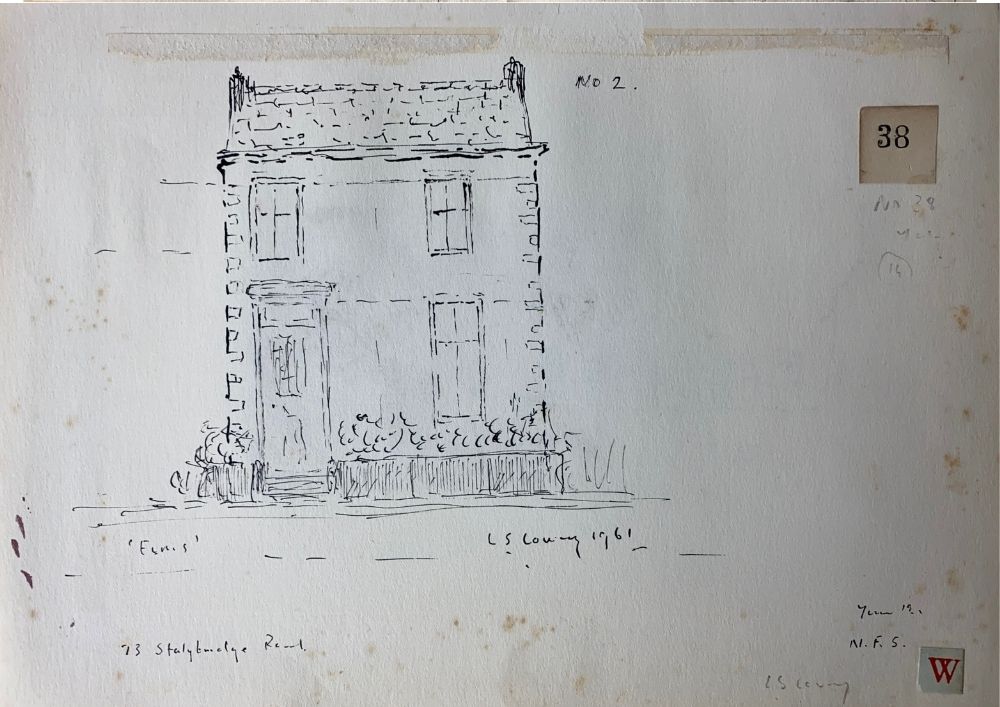 No 2.
38
No 38
16
'Elms'
L S Lowry 1961
23 Stalybridge Road
N.F.S.
W
L S Lowry